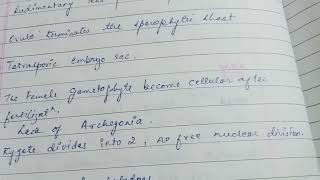 Rudimentary
Ovule terminates the sporophytic shoot
Tetrasporic embryo sac.
The Female gametophyte become cellular after
fertilizatn.
Lack of Archegonia.
Zygote divides into 2, no free nuclear division.